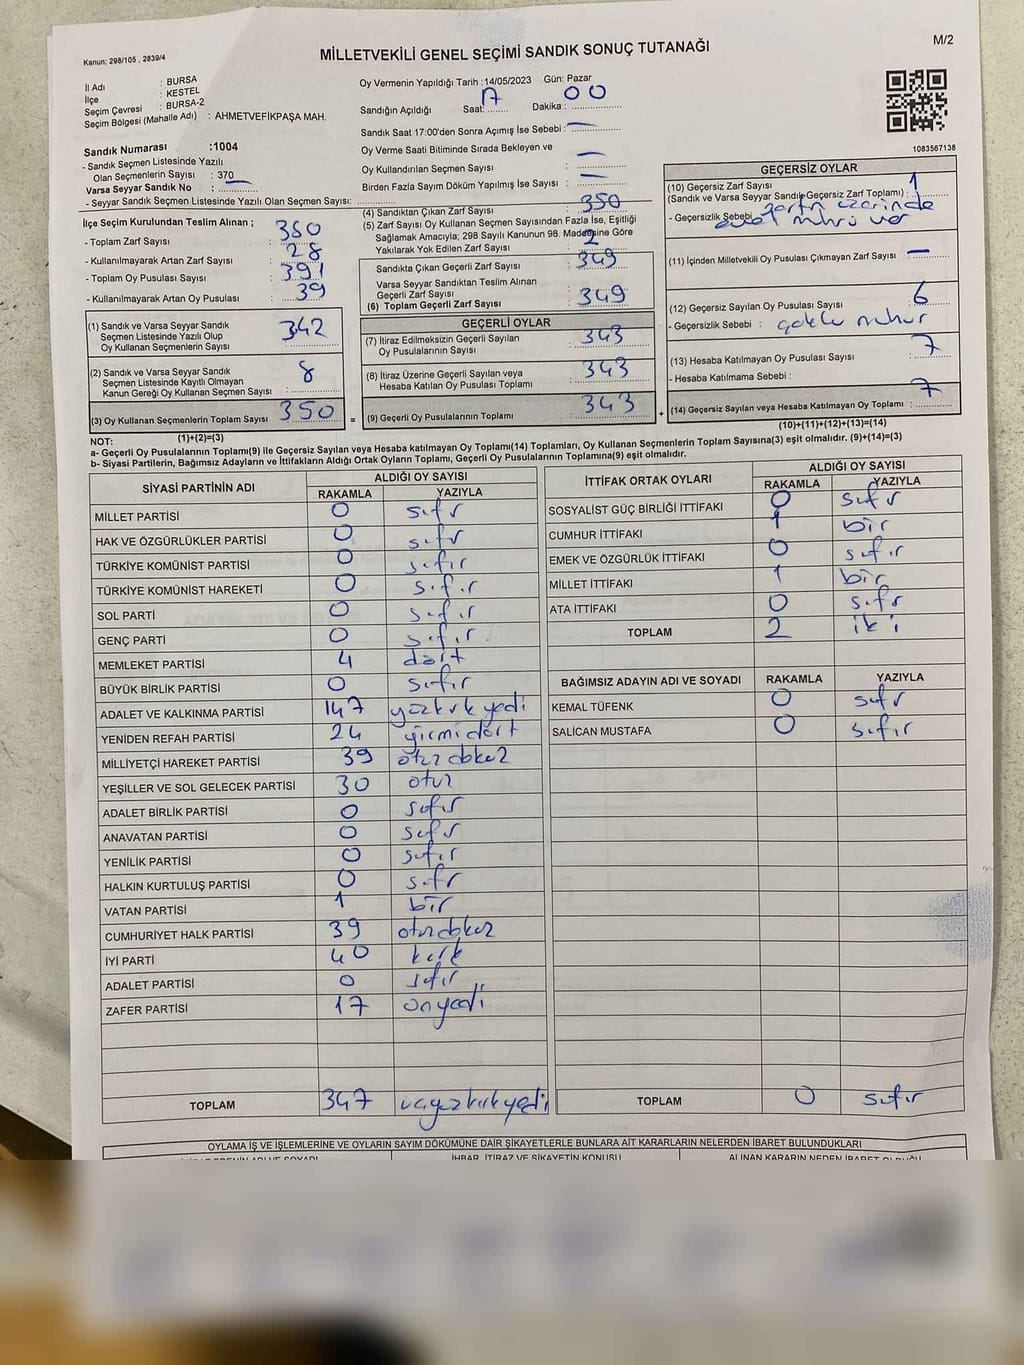 Kanun; 298/105 , 2839/4
MİLLETVEKİLİ GENEL SEÇİMİ SANDIK SONUÇ TUTANAĞI
M/2
İl Adı : BURSA
İlçe : KESTEL
Seçim Çevresi : BURSA-2
Seçim Bölgesi (Mahalle Adı) : AHMETVEFİKPAŞA MAH.
Sandık Numarası :1004
- Sandık Seçmen Listesinde Yazılı
Olan Seçmenlerin Sayısı : 370
Varsa Seyyar Sandık No : —
- Seyyar Sandık Seçmen Listesinde Yazılı Olan Seçmen Sayısı:
Oy Vermenin Yapıldığı Tarih :14/05/2023 Gün: Pazar
Sandığın Açıldığı Saat: 17 Dakika : 00
Sandık Saat 17:00'den Sonra Açımış İse Sebebi : —
Oy Verme Saati Bitiminde Sırada Bekleyen ve
Oy Kullandırılan Seçmen Sayısı : —
Birden Fazla Sayım Döküm Yapılmış İse Sayısı : —
1083567138
İlçe Seçim Kurulundan Teslim Alınan ;
- Toplam Zarf Sayısı : 350
- Kullanılmayarak Artan Zarf Sayısı : 28
- Toplam Oy Pusulası Sayısı : 391
- Kullanılmayarak Artan Oy Pusulası : 39
(1) Sandık ve Varsa Seyyar Sandık
Seçmen Listesinde Yazılı Olup
Oy Kullanan Seçmenlerin Sayısı : 342
(2) Sandık ve Varsa Seyyar Sandık
Seçmen Listesinde Kayıtlı Olmayan
Kanun Gereği Oy Kullanan Seçmen Sayısı : 8
(3) Oy Kullanan Seçmenlerin Toplam Sayısı : 350
(1)+(2)=(3)
(4) Sandıktan Çıkan Zarf Sayısı : 350
(5) Zarf Sayısı Oy Kullanan Seçmen Sayısından Fazla İse, Eşitliği
Sağlamak Amacıyla; 298 Sayılı Kanunun 98. Maddesine Göre
Yakılarak Yok Edilen Zarf Sayısı :
Sandıkta Çıkan Geçerli Zarf Sayısı : 349
Varsa Seyyar Sandıktan Teslim Alınan
Geçerli Zarf Sayısı :
(6) Toplam Geçerli Zarf Sayısı : 349
GEÇERLİ OYLAR
(7) İtiraz Edilmeksizin Geçerli Sayılan
Oy Pusulalarının Sayısı : 343
(8) İtiraz Üzerine Geçerli Sayılan veya
Hesaba Katılan Oy Pusulası Toplamı : 343
= (9) Geçerli Oy Pusulalarının Toplamı : 343 +
GEÇERSİZ OYLAR
(10) Geçersiz Zarf Sayısı
(Sandık ve Varsa Seyyar Sandık Geçersiz Zarf Toplamı) : 1
- Geçersizlik Sebebi : zarfın üzerinde
evet mührü var
(11) İçinden Milletvekili Oy Pusulası Çıkmayan Zarf Sayısı : —
(12) Geçersiz Sayılan Oy Pusulası Sayısı : 6
- Geçersizlik Sebebi : çoklu mühür
(13) Hesaba Katılmayan Oy Pusulası Sayısı : 7
- Hesaba Katılmama Sebebi :
(14) Geçersiz Sayılan veya Hesaba Katılmayan Oy Toplamı : 7
(10)+(11)+(12)+(13)=(14)
NOT:
a- Geçerli Oy Pusulalarının Toplamı(9) ile Geçersiz Sayılan veya Hesaba katılmayan Oy Toplamı(14) Toplamları, Oy Kullanan Seçmenlerin Toplam Sayısına(3) eşit olmalıdır. (9)+(14)=(3)
b- Siyasi Partilerin, Bağımsız Adayların ve İttifakların Aldığı Ortak Oyların Toplamı, Geçerli Oy Pusulalarının Toplamına(9) eşit olmalıdır.
SİYASİ PARTİNİN ADI ALDIĞI OY SAYISI
RAKAMLA YAZIYLA
MİLLET PARTİSİ 0 sıfır
HAK VE ÖZGÜRLÜKLER PARTİSİ 0 sıfır
TÜRKİYE KOMÜNİST PARTİSİ 0 sıfır
TÜRKİYE KOMÜNİST HAREKETİ 0 sıfır
SOL PARTİ 0 sıfır
GENÇ PARTİ 0 sıfır
MEMLEKET PARTİSİ 4 dört
BÜYÜK BİRLİK PARTİSİ 0 sıfır
ADALET VE KALKINMA PARTİSİ 147 yüzkırkyedi
YENİDEN REFAH PARTİSİ 24 yirmidört
MİLLİYETÇİ HAREKET PARTİSİ 39 otuzdokuz
YEŞİLLER VE SOL GELECEK PARTİSİ 30 otuz
ADALET BİRLİK PARTİSİ 0 sıfır
ANAVATAN PARTİSİ 0 sıfır
YENİLİK PARTİSİ 0 sıfır
HALKIN KURTULUŞ PARTİSİ 0 sıfır
VATAN PARTİSİ 1 bir
CUMHURİYET HALK PARTİSİ 39 otuzdokuz
İYİ PARTİ 40 kırk
ADALET PARTİSİ 0 sıfır
ZAFER PARTİSİ 17 onyedi
TOPLAM 347 üçyüzkırkyedi
İTTİFAK ORTAK OYLARI ALDIĞI OY SAYISI
RAKAMLA YAZIYLA
SOSYALİST GÜÇ BİRLİĞİ İTTİFAKI 0 sıfır
CUMHUR İTTİFAKI 1 bir
EMEK VE ÖZGÜRLÜK İTTİFAKI 0 sıfır
MİLLET İTTİFAKI 1 bir
ATA İTTİFAKI 0 sıfır
TOPLAM 2 iki
BAĞIMSIZ ADAYIN ADI VE SOYADI RAKAMLA YAZIYLA
KEMAL TÜFENK 0 sıfır
SALİCAN MUSTAFA 0 sıfır
TOPLAM 0 sıfır
OYLAMA İŞ VE İŞLEMLERİNE VE OYLARIN SAYIM DÖKÜMÜNE DAİR ŞİKAYETLERLE BUNLARA AİT KARARLARIN NELERDEN İBARET BULUNDUKLARI
İHBAR, İTİRAZ VE ŞİKAYETİN KONUSU ALINAN KARARIN NEDEN İBARET OLDUĞU